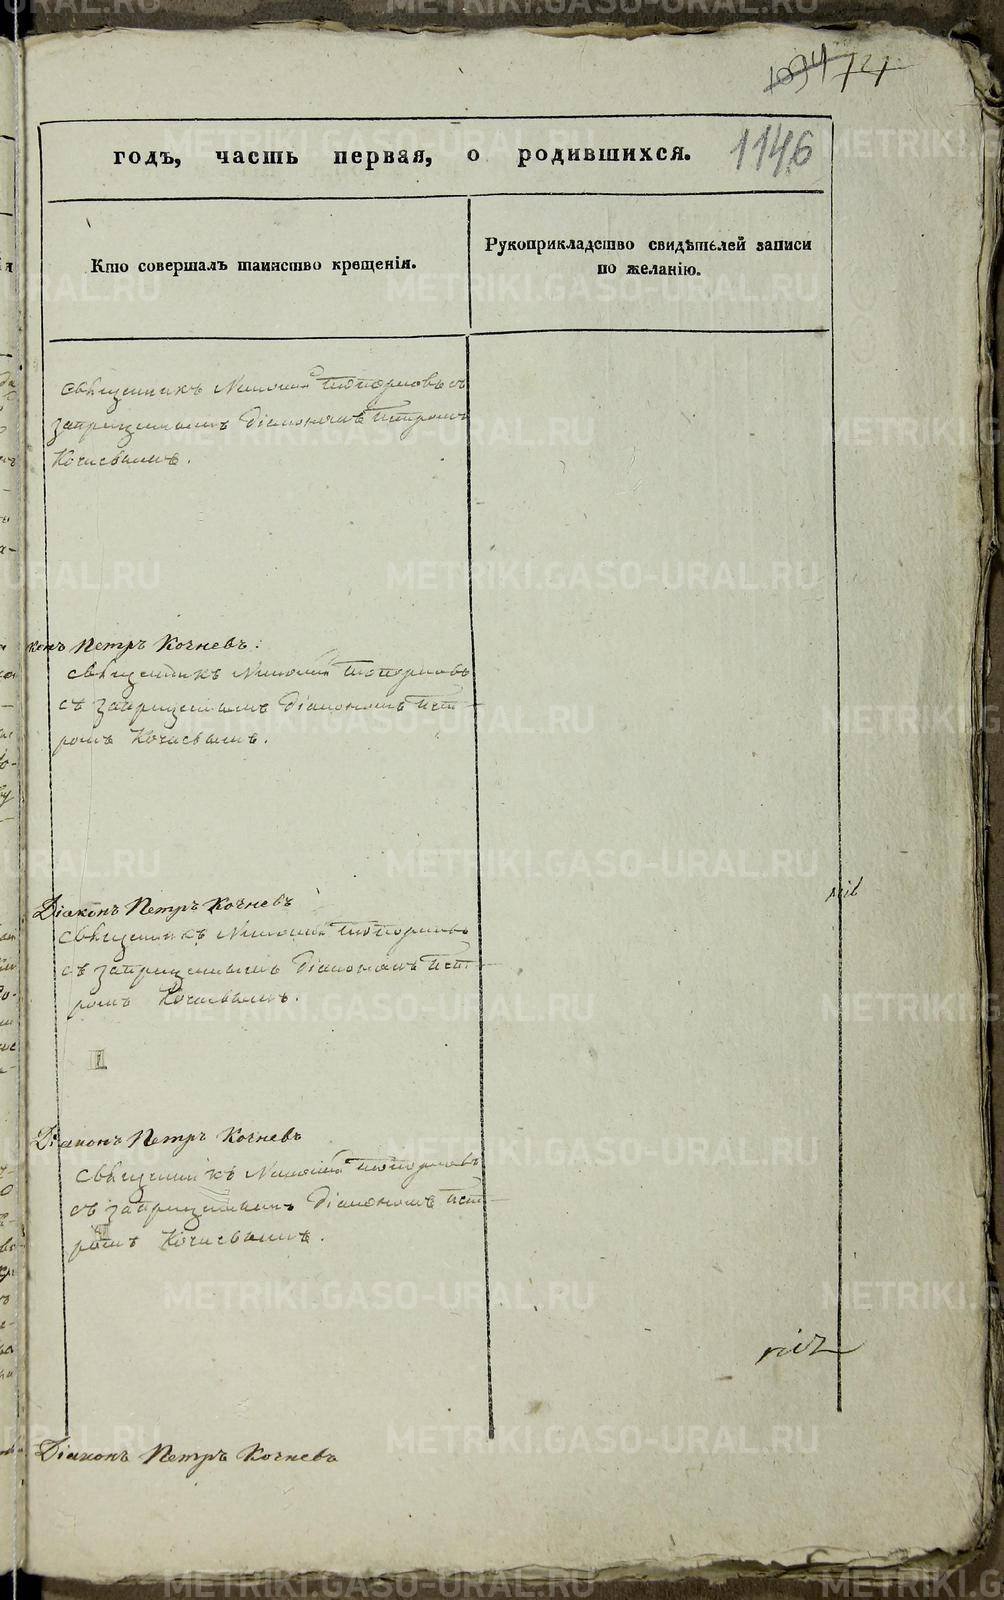 1146
годъ, часть первая, о родившихся.
Кто совершалъ таинство крещенія.
Рукоприкладство свидѣтелей записи
по желанію.
Священникъ Топорковъ съ
запрещеннымъ Діакономъ Петромъ
Кочневымъ.
конъ Петръ Кочневъ.
Священникъ Топорковъ
съ запрещеннымъ Діакономъ Пет-
ромъ Кочневымъ.
Діаконъ Петръ Кочневъ
Священникъ Топорковъ
съ запрещеннымъ Діакономъ Пет-
ромъ Кочневымъ.
Діаконъ Петръ Кочневъ
Священникъ Топорковъ
съ запрещеннымъ Діакономъ Пет-
ромъ Кочневымъ.
Діаконъ Петръ Кочневъ
METRIKI.GASO-URAL.RU